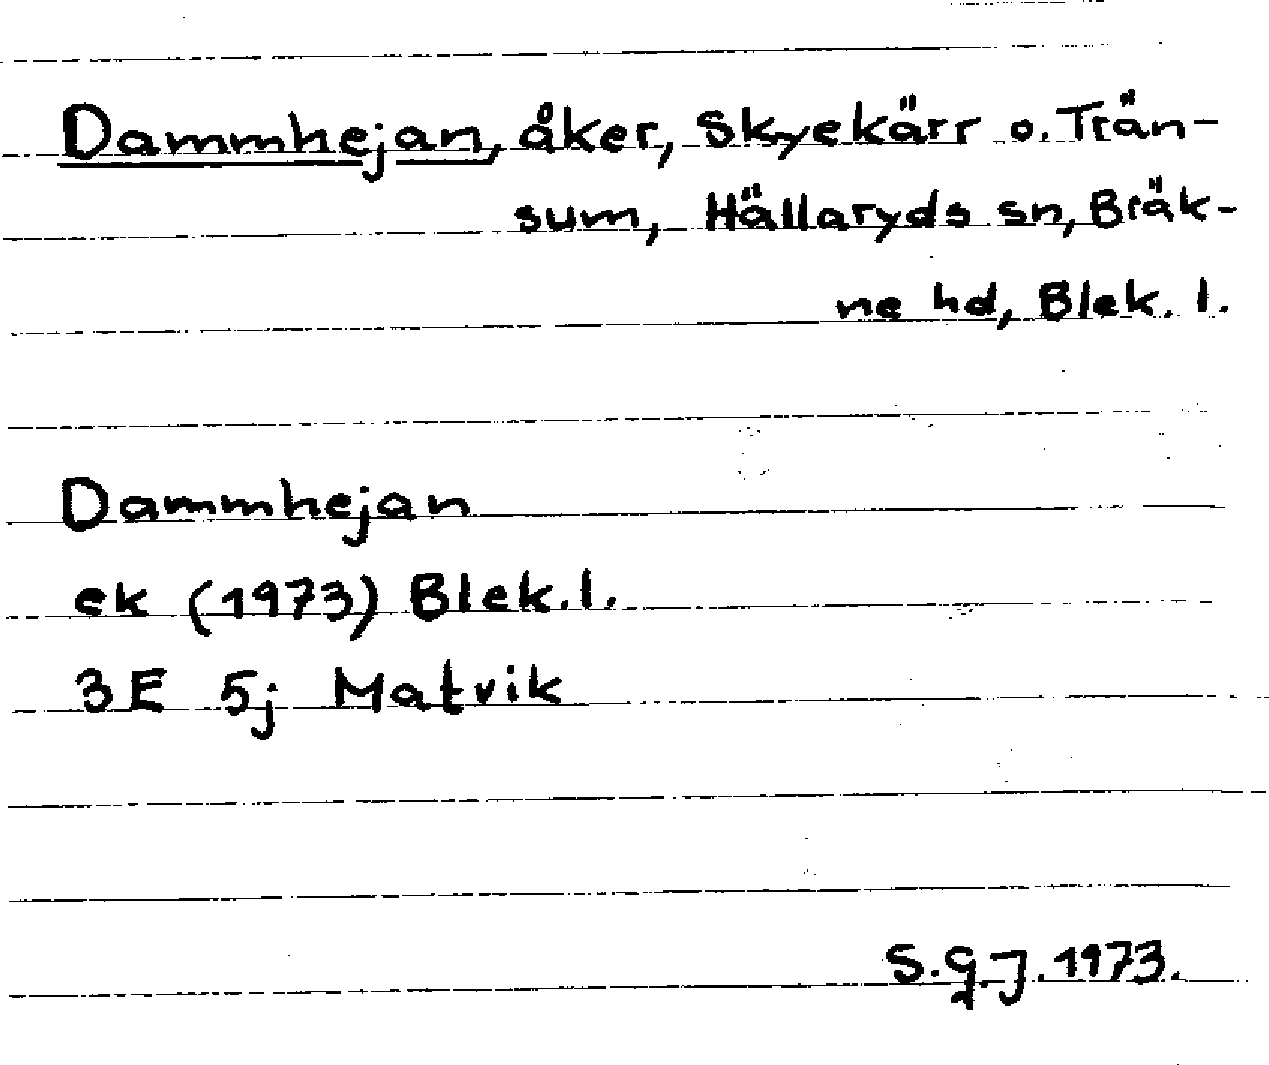 Dammhejan, åker, Skyekärr o. Trän-
sum, Hällaryds sn, Bräk-
ne hd, Blek. l.
Dammhejan
ek (1973) Blek. l.
3E 5j Matvik
S.G.J. 1973.